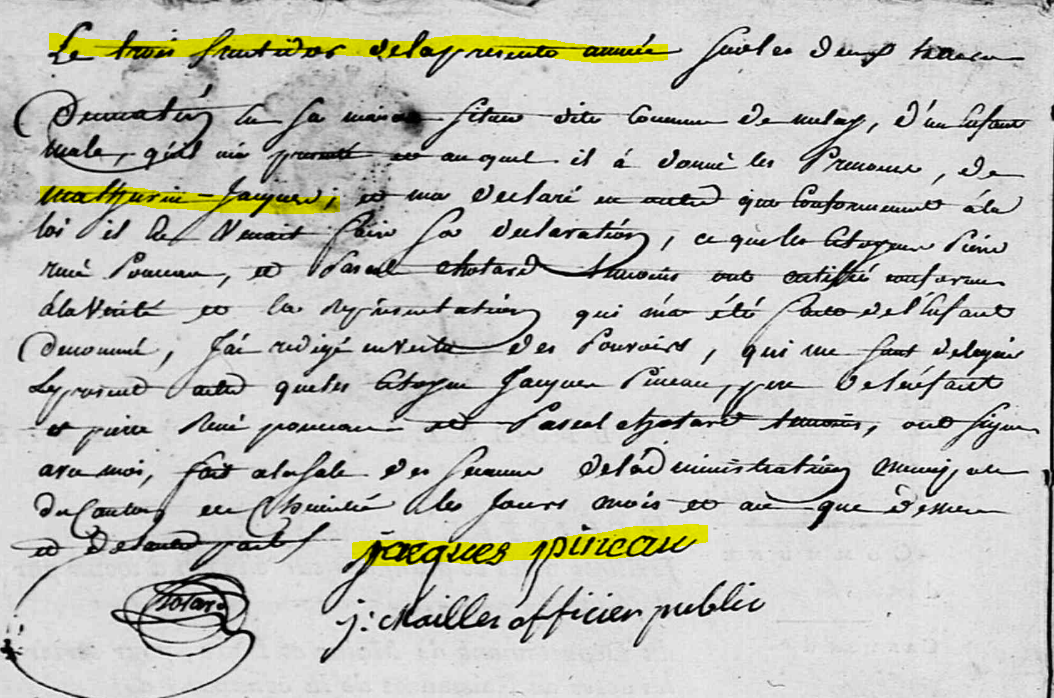 Le trois fructidor delapresente année sur les deux heures
Dumatin en sa maison situee dite Commune de melay, d'un Enfant
male, qu'il ma presenté et auquel il à donné les Prenoms, de
mathurin-Jacques; et ma declaré en outre que Conformement àla
loi il Venait faire sa declaration, ce que les Citoyens Pierre
rené Poneau, et Pascal chotard temoins ont certiffié conforme
àlaVerité et la representation qui m'a été faite del'Enfant
denommé, J'ai redigé envertu des Pouvoirs, qui me sont delegués
Lepresent acte que les Citoyens Jacques Pineau, pere del'enfant
et pierre René poneau et Pascal chotard temoins, ont signé
avec moi, fait alasale des seances deladministration municipale
du Canton de Chemillé les Jours mois et an que dessus
et de lautre part
jacques pineau
chotard
j: Mailles officier public